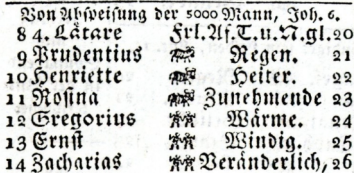 Von Abspeisung der 5000 Mann, Joh. 6.
8 4. Lätare Frl. Af. T. u. N. gl. 20
9 Prudentius Regen. 21
10 Henriette Heiter. 22
11 Rosina Zunehmende 23
12 Gregorius Wärme. 24
13 Ernst Windig. 25
14 Zacharias Veränderlich, 26